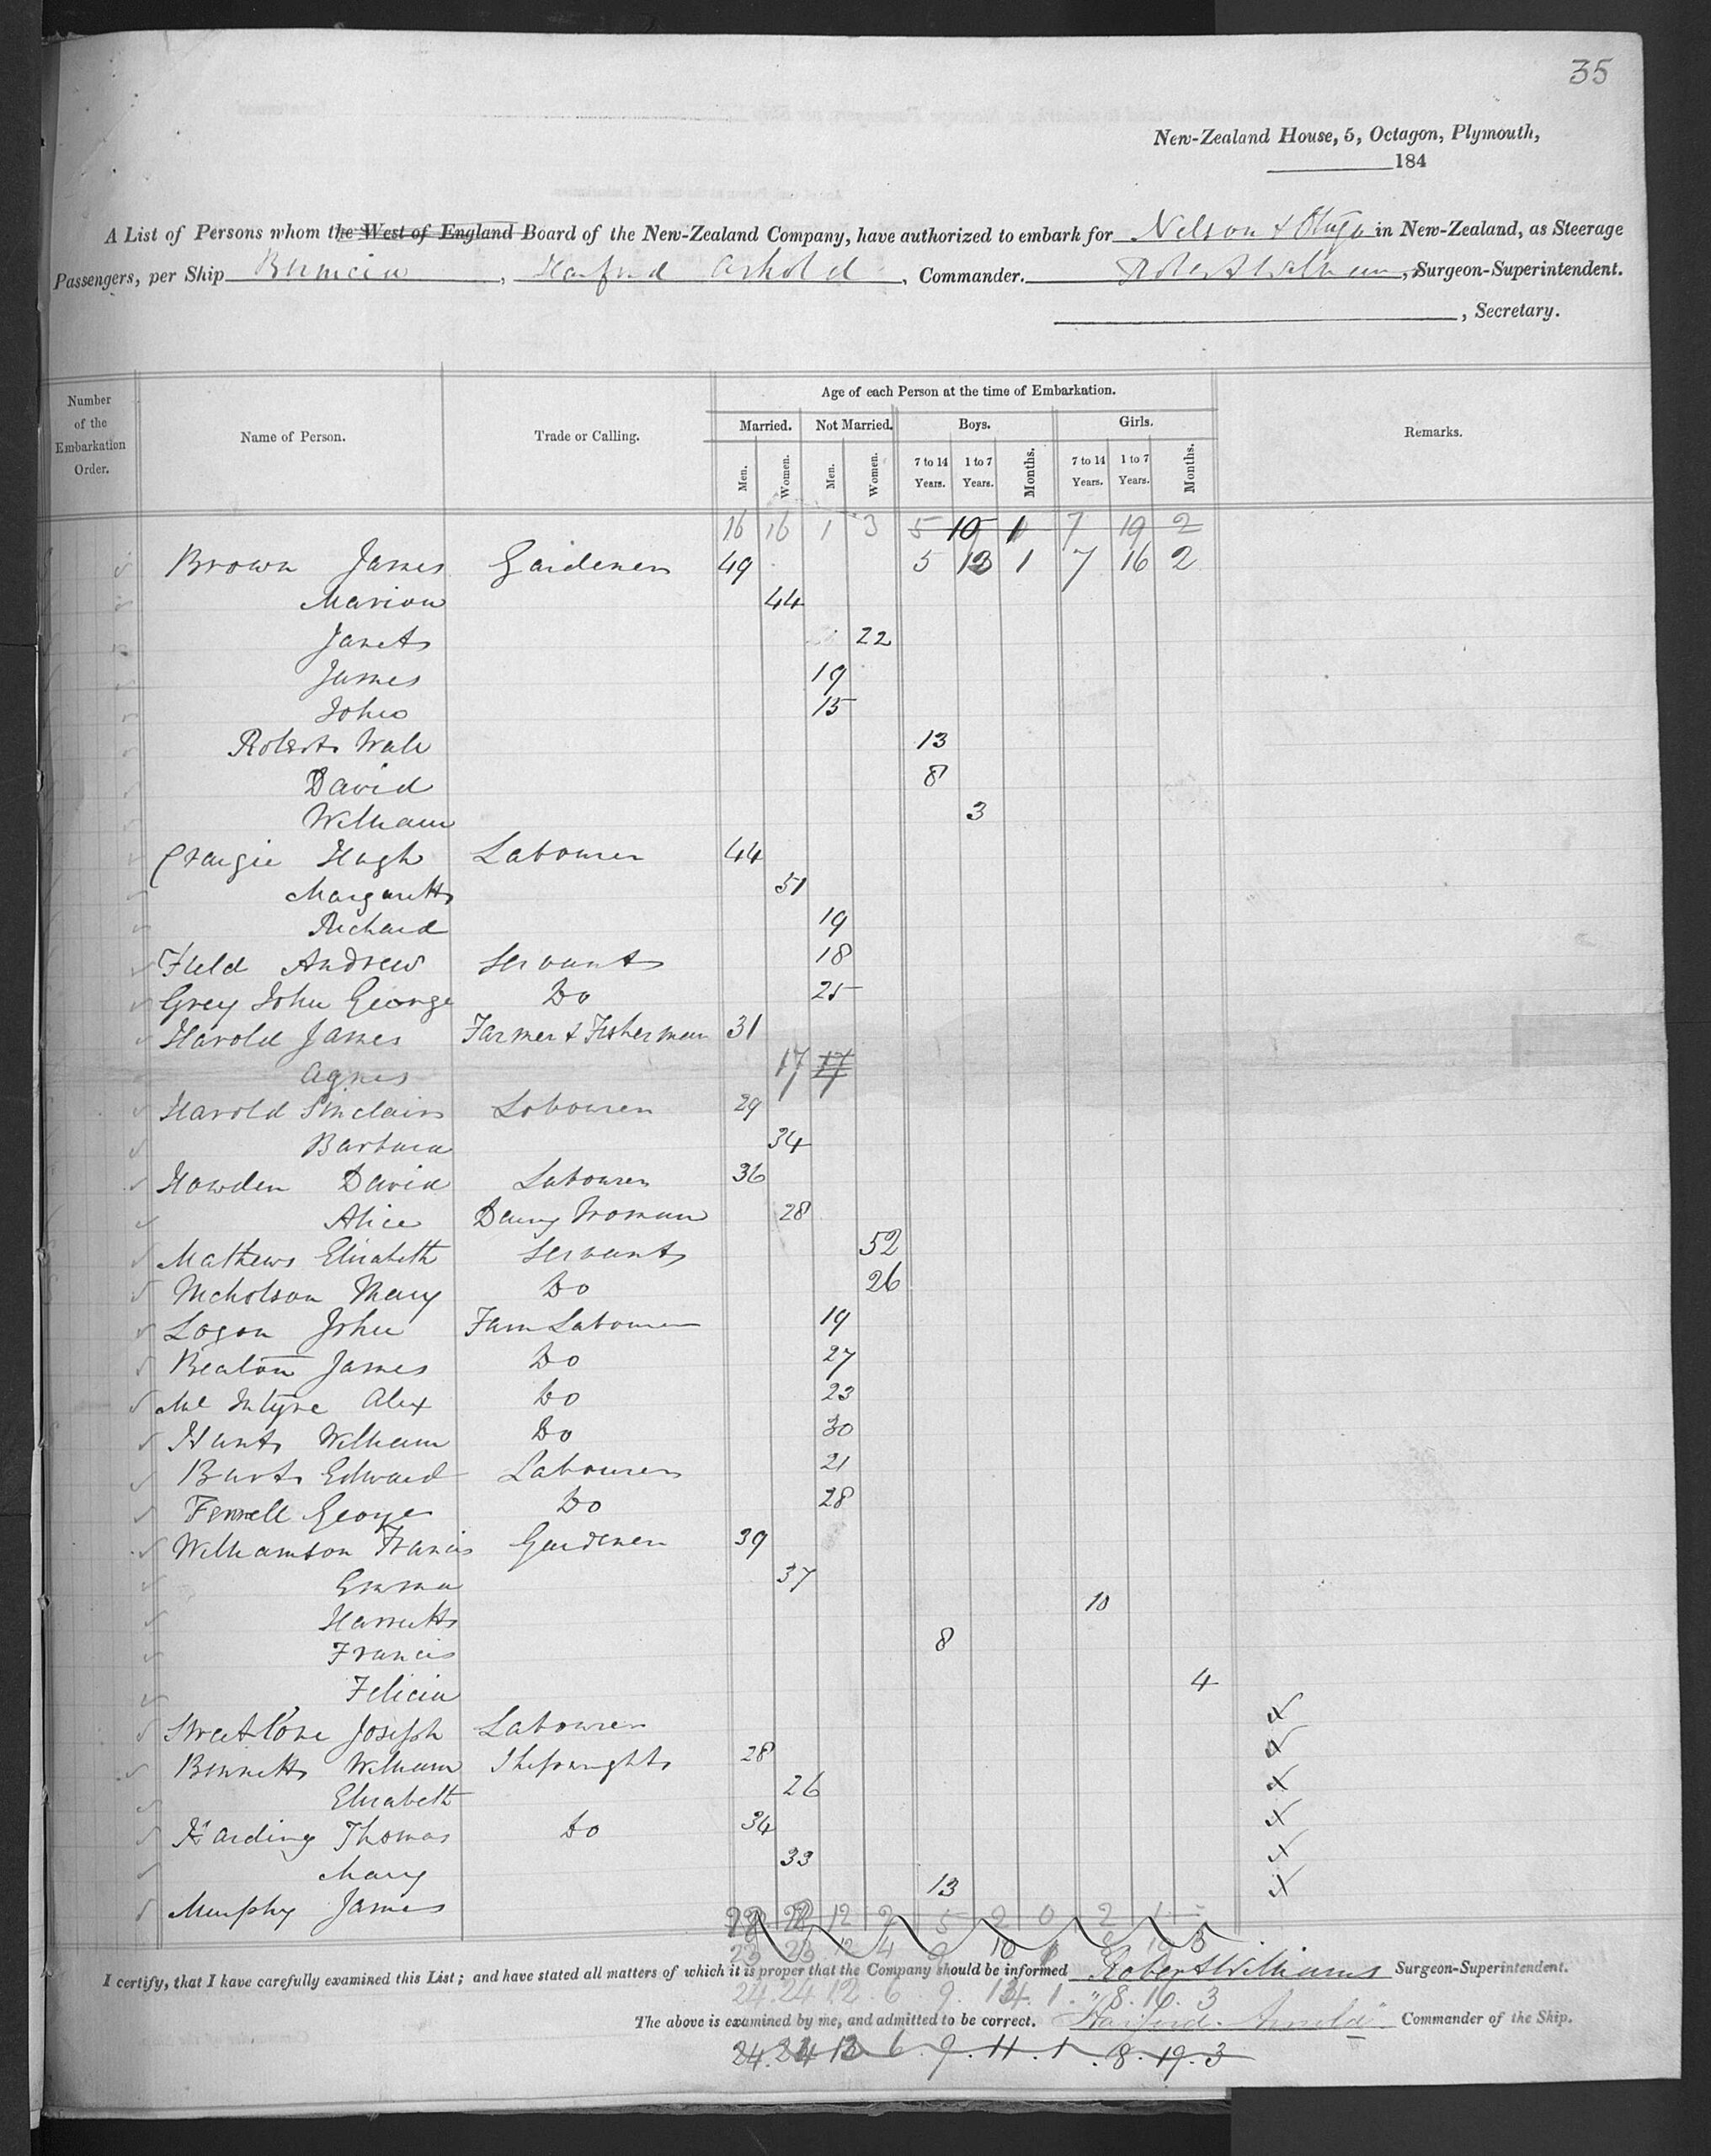 35
New-Zealand House, 5, Octagon, Plymouth,
184
A List of Persons whom the West of England Board of the New-Zealand Company, have authorized to embark for Nelson & Otago in New-Zealand, as Steerage
Passengers, per Ship Bernicia, Harford Arnold, Commander. Robert Williams, Surgeon-Superintendent.
, Secretary.
Number of the Embarkation Order. Name of Person. Trade or Calling. Age of each Person at the time of Embarkation. Remarks.
Married. Not Married. Boys. Girls.
Men. Women. Men. Women. 7 to 14 Years. 1 to 7 Years. Months. 7 to 14 Years. 1 to 7 Years. Months.
16 16 1 3 5 10 1 7 19 2
Brown James Gardener 49 5 13 1 7 16 2
Marion 44
Janet 22
James 19
John 15
Robert Wale 13
David 8
William 3
Craigie Hugh Labourer 44
Margarett 51
Richard 19
Field Andrew Servant 18
Grey John George Do 25
Harold James Farmer & Fisherman 31
Agnes 17 17
Harold Sinclair Labourer 29
Barbara 34
Howden David Labourer 36
Alice Dairy Woman 28
Mathews Elizabeth Servant 52
Nicholson Mary Do 26
Logan John Farm Labourer 19
Beaton James Do 27
Mc Intyre Alex Do 23
Hunt William Do 30
Burt Edward Labourer 21
Ferrell George Do 28
Williamson Francis Gardener 39
Emma 37
Harriett 10
Francis 8
Felicia 4
Joseph Labourer
Bennett William Shipwright 28
Elizabeth 26
Harding Thomas Do 34
Mary 33
Murphy James 13
12 2 5 2 0 2 1
23 23 12 4 9 10
I certify, that I have carefully examined this List; and have stated all matters of which it is proper that the Company should be informed Robert Williams Surgeon-Superintendent.
24. 24 12. 6. 9. 14. 1. 8. 16. 3
The above is examined by me, and admitted to be correct. Harford Arnold Commander of the Ship.
24. 24 12 6. 9. 11. 1. 8. 19. 3